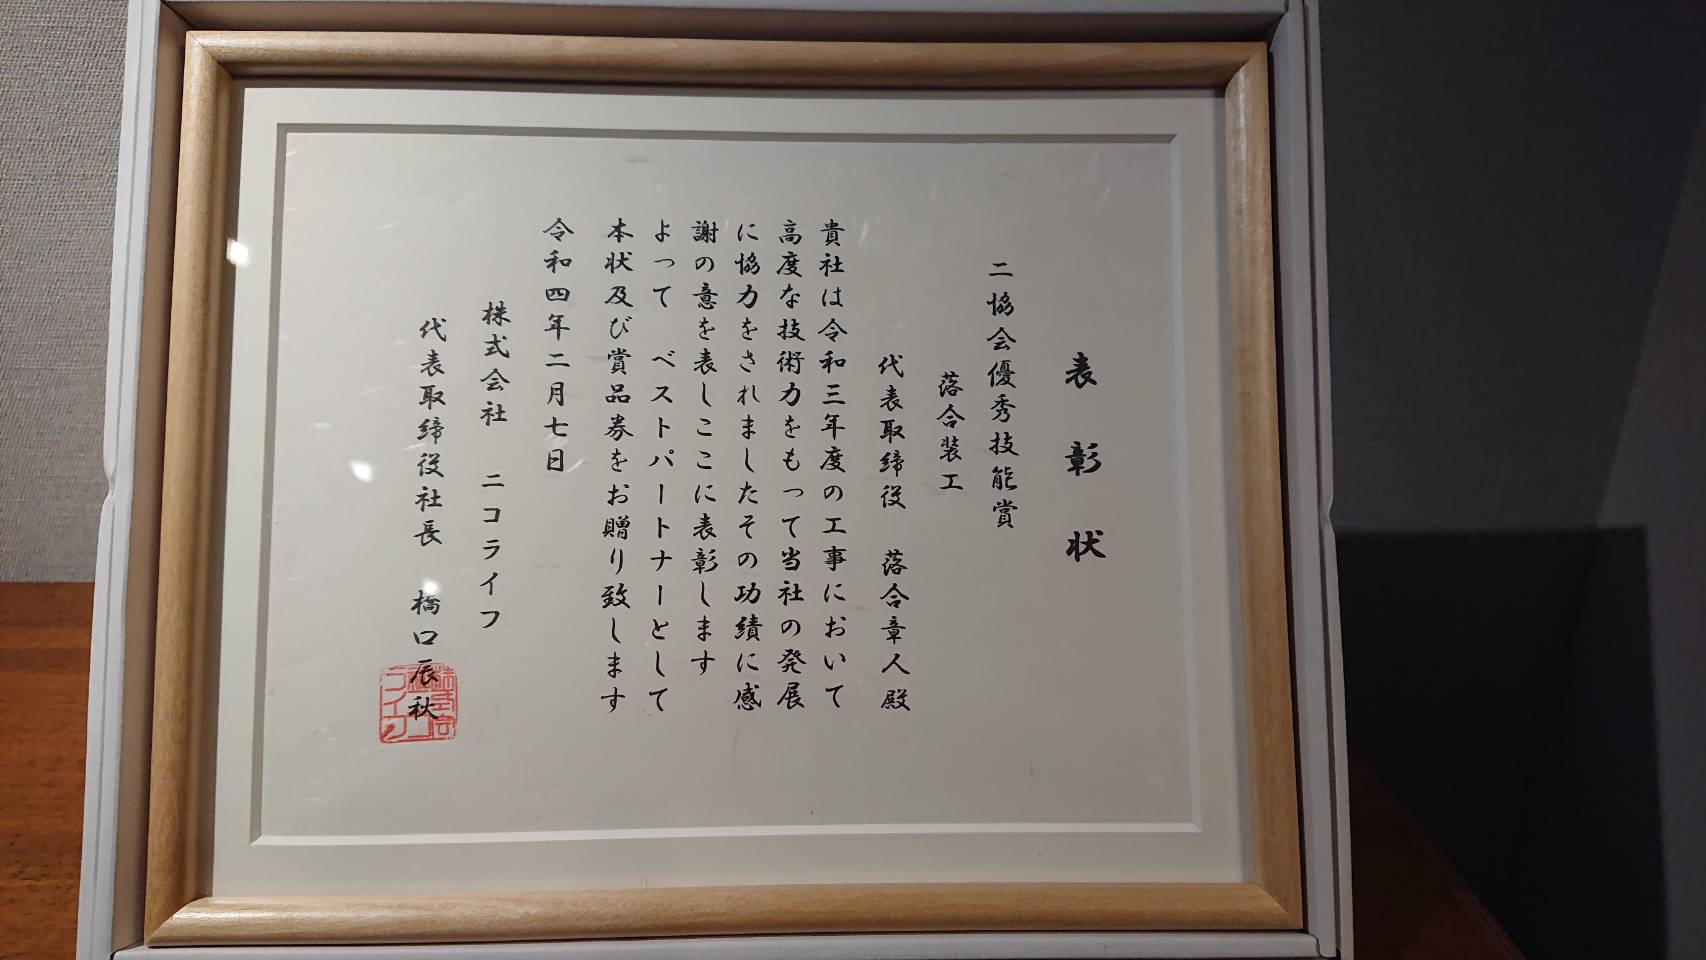 表彰状
二協会優秀技能賞
落合装工
代表取締役　落合章人殿
貴社は令和三年度の工事において
高度な技術力をもって当社の発展
に協力をされましたその功績に感
謝の意を表しここに表彰します
よって　ベストパートナーとして
本状及び賞品券をお贈り致します
令和四年二月七日
株式会社　ニコライフ
代表取締役社長　橋口辰秋
株式会社ニコライフ